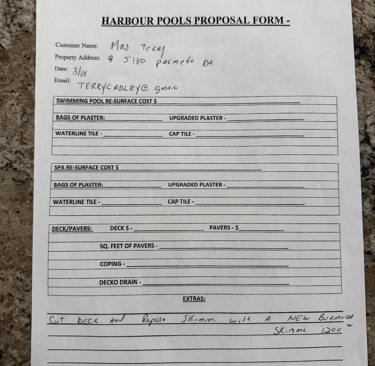 HARBOUR POOLS PROPOSAL FORM -
Customer Name: Mrs Terry
Property Address: 5180 Palmeto DR
Date: 3/18
Email: TERRYCADLEY@ gmail
SWIMMING POOL RE-SURFACE COST $
BAGS OF PLASTER: UPGRADED PLASTER -
WATERLINE TILE - CAP TILE -
SPA RE-SURFACE COST $
BAGS OF PLASTER: UPGRADED PLASTER -
WATERLINE TILE - CAP TILE -
DECK/PAVERS: DECK $ - PAVERS - $
SQ. FEET OF PAVERS -
COPING -
DECKO DRAIN -
EXTRAS:
Cut DECK and Replace Skimm. with A NEW
Skimmer 1200